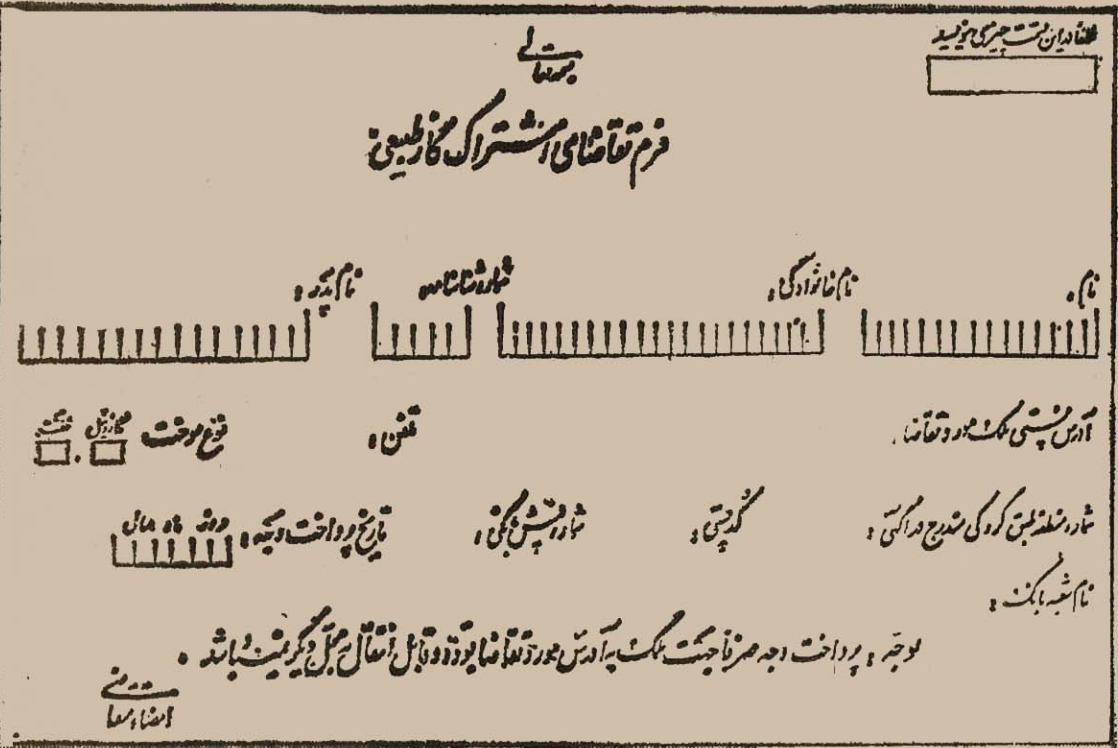 لطفا در این قسمت چیزی ننویسید
بسمه تعالی
فرم تقاضای اشتراک گاز طبیعی:
نام: نام خانوادگی: شماره شناسنامه: نام پدر:
آدرس پستی ملک مورد تقاضا: تلفن: نوع سوخت گازوئیل نفت
شماره منطقه طبق کروکی مندرج در آگهی: کد پستی: شماره فیش بانکی: تاریخ پرداخت وجه: روز ماه سال
نام شعبه بانک:
توجه: پرداخت وجه صرفاً جهت ملک به آدرس مورد تقاضا بوده و قابل انتقال به محل دیگر نمیباشد.
امضاء متقاضی